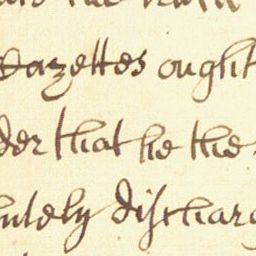 Gazettes ought
der that he the
lutely discharg